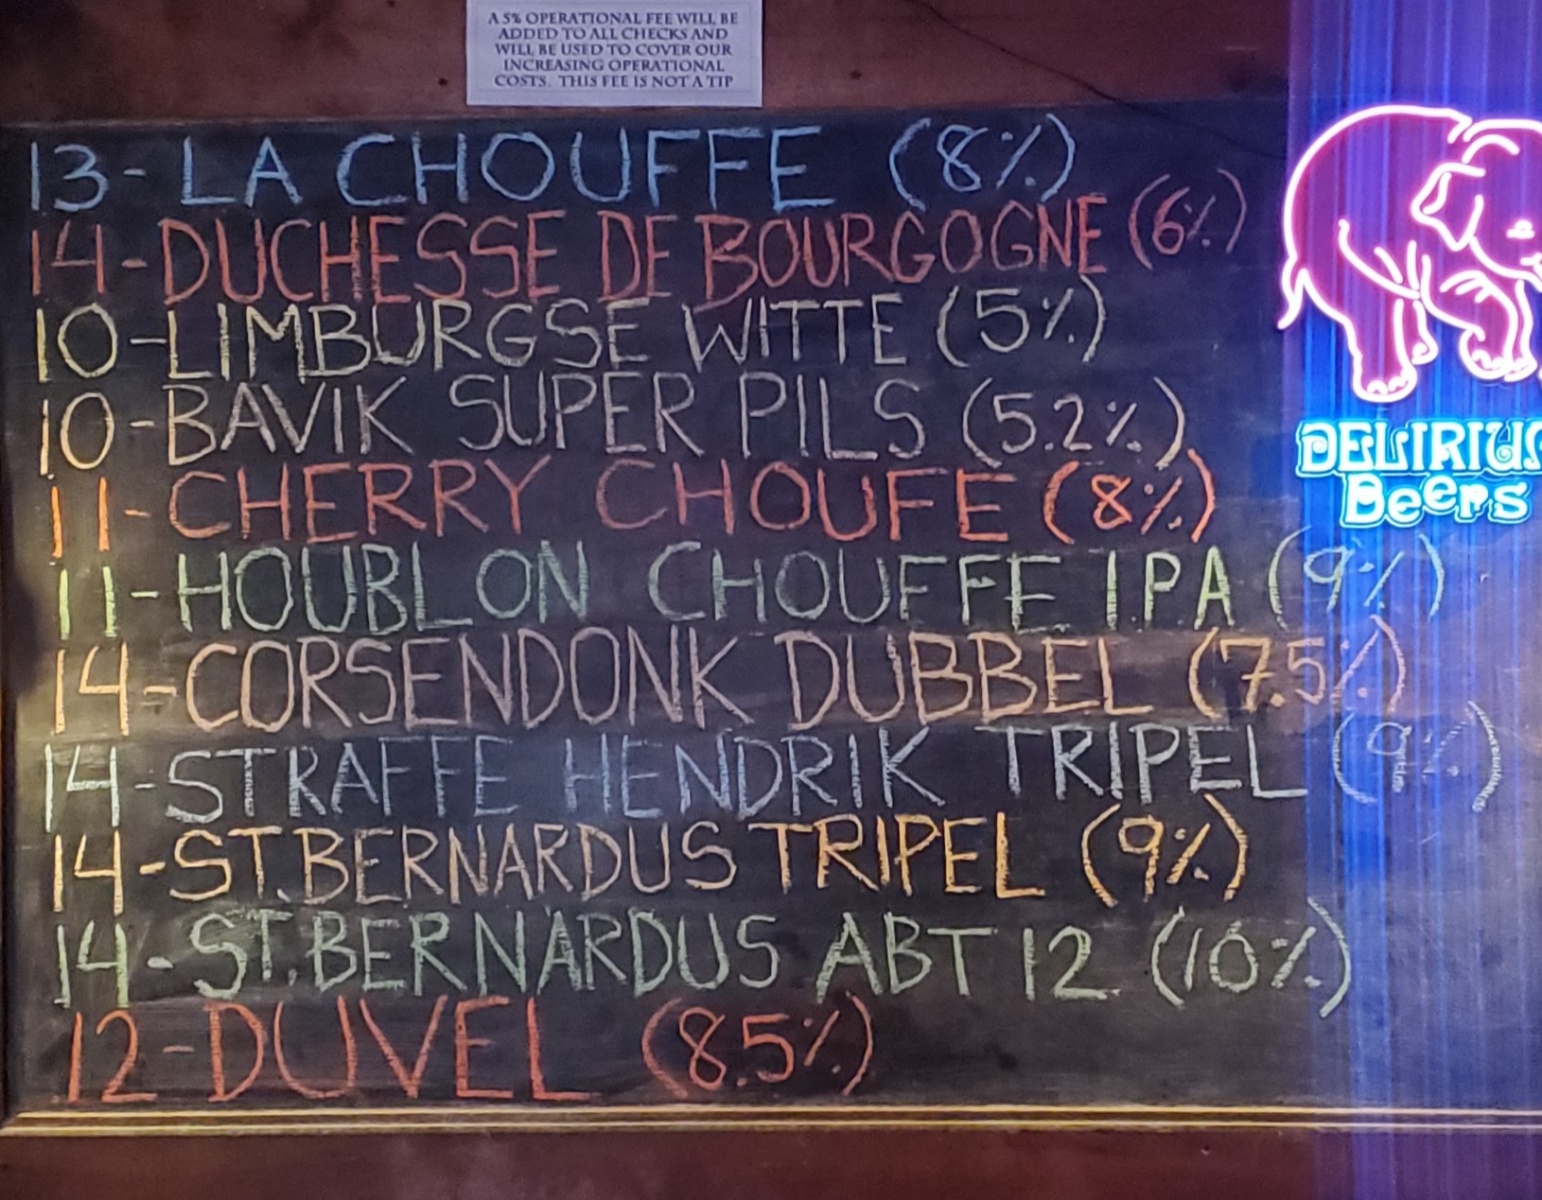 A 5% OPERATIONAL FEE WILL BE
ADDED TO ALL CHECKS AND
WILL BE USED TO COVER OUR
INCREASING OPERATIONAL
COSTS. THIS FEE IS NOT A TIP
13- LA CHOUFFE (8%)
14- DUCHESSE DE BOURGOGNE (6%)
10- LIMBURGSE WITTE (5%)
10- BAVIK SUPER PILS (5.2%)
11- CHERRY CHOUFE (8%)
11- HOUBLON CHOUFFE I.P.A (9%)
14- CORSENDONK DUBBEL (7.5%)
14- STRAFFE HENDRIK TRIPEL (9%)
14- ST.BERNARDUS TRIPEL (9%)
14- ST.BERNARDUS ABT 12 (10%)
12- DUVEL (8.5%)
DELIRIU
Beers